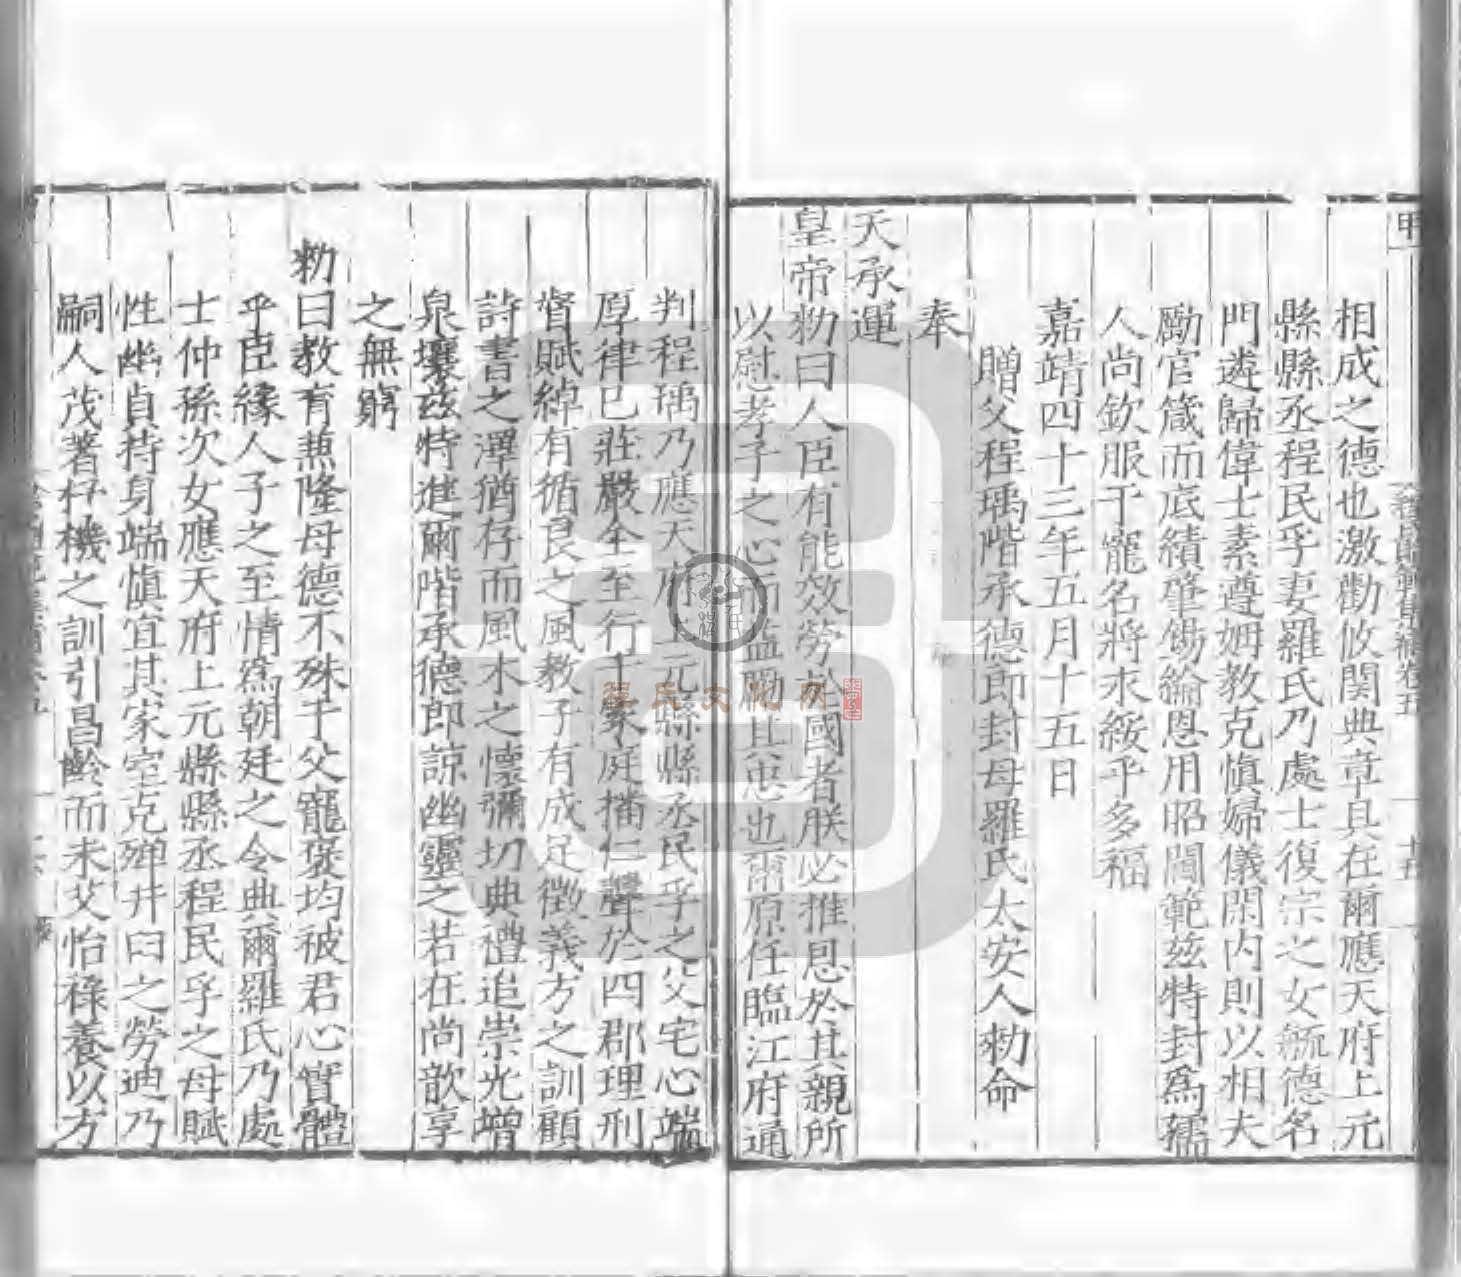 相成之德也激勸攸関典章具在爾應天府上元
縣縣丞程民孚妻羅氏乃處士復宗之女毓德名
門遴歸偉士素尊姆教克愼婦儀閑内則以相夫
勵官箴而底績肇錫綸恩用昭閫範兹特封爲孺
人尚欽服于寵名將永綏乎多福
嘉靖四十三年五月十五日
贈父程瑀階承德郎封母羅氏太安人勑命
奉
天承運
皇帝勑曰人臣有能效勞於國者朕必推恩於其親所
以慰孝子之心而益勵其忠也爾原任臨江府通
判程瑀乃應天府上元縣縣丞民孚之父宅心端
厚律已莊嚴全至行于家庭播仁聲於四郡理刑
督賦綽有循良之風教子有成足徴義方之訓顧
詩書之澤猶存而風木之懷彌切典禮追崇光增
泉壤兹特進爾階承德郎諒幽靈之若在尚歆享
之無窮
勑曰教育兼隆母德不殊于父寵褒均被君心實體
乎臣縁人子之至情爲朝廷之令典爾羅氏乃處
士仲孫次女應天府上元縣縣丞程民孚之母賦
性幽貞持身端愼宜其家室克殫井臼之勞迪乃
嗣人茂著杼機之訓引昌齡而未艾怡祿養以方
程氏文化网